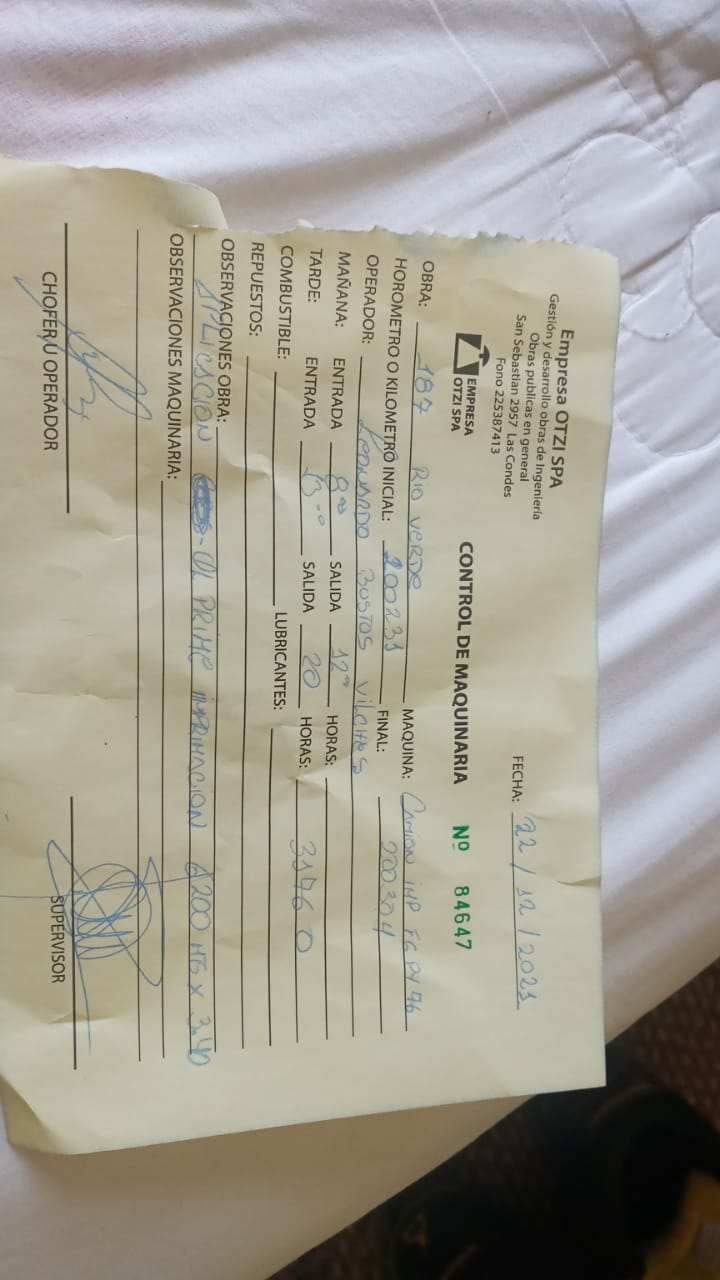 Empresa OTZI SPA
Gestión y desarrollo obras de Ingeniería
Obras publicas en general
San Sebastían 2957 Las Condes
Fono 225387413
FECHA: 22 / 12 / 2021
EMPRESA
OTZI SPA
CONTROL DE MAQUINARIA Nº 84647
OBRA: 187 RIO VERDE MAQUINA: CAMION IMP FGPY 76
HOROMETRO O KILOMETRO INICIAL: 200231 FINAL: 200304
OPERADOR: LEONARDO BUSTOS VILCHES
MAÑANA: ENTRADA 8:00 SALIDA 12:00 HORAS:
TARDE: ENTRADA 13:00 SALIDA 20 HORAS: 3176 0
COMBUSTIBLE: LUBRICANTES:
REPUESTOS:
OBSERVACIONES OBRA:
APLICACION - OL PRIME IMPRIMACION 200 MTS X 3.40
OBSERVACIONES MAQUINARIA:
CHOFER U OPERADOR SUPERVISOR